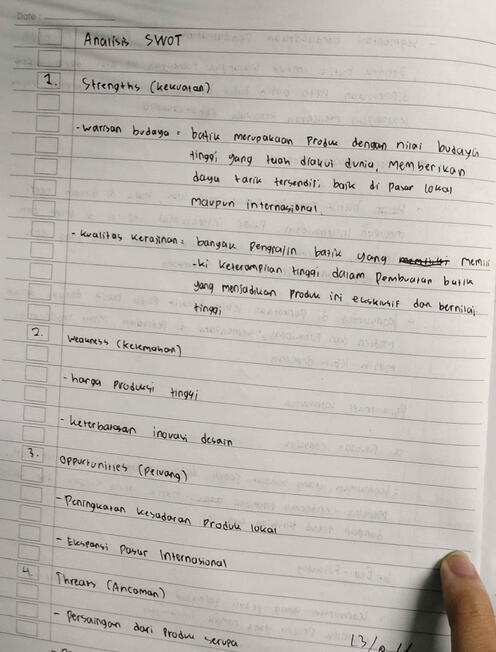 Date :
Analisis SWOT
1. Strengths (kekuatan)
- warisan budaya = batik merupakaan Produk dengan nilai budaya
tinggi yang telah diakui dunia, Memberikan
daya tarik tersendiri baik di Pasar lokal
maupun internasional.
- kualitas kerajinan = banyak Pengrajin batik yang memili
-ki keterampilan tinggi dalam Pembuatan batik
yang menjadikan Produk ini eksklusif dan bernilai
tinggi
2. weakness (kelemahan)
- harga produksi tinggi
- keterbatasan inovasi desain
3. opportunities (peluang)
- Peningkatan kesadaran Produk lokal
- Ekspansi Pasar Internasional
4. Threats (Ancaman)
- Persaingan dari Produk serupa
13/